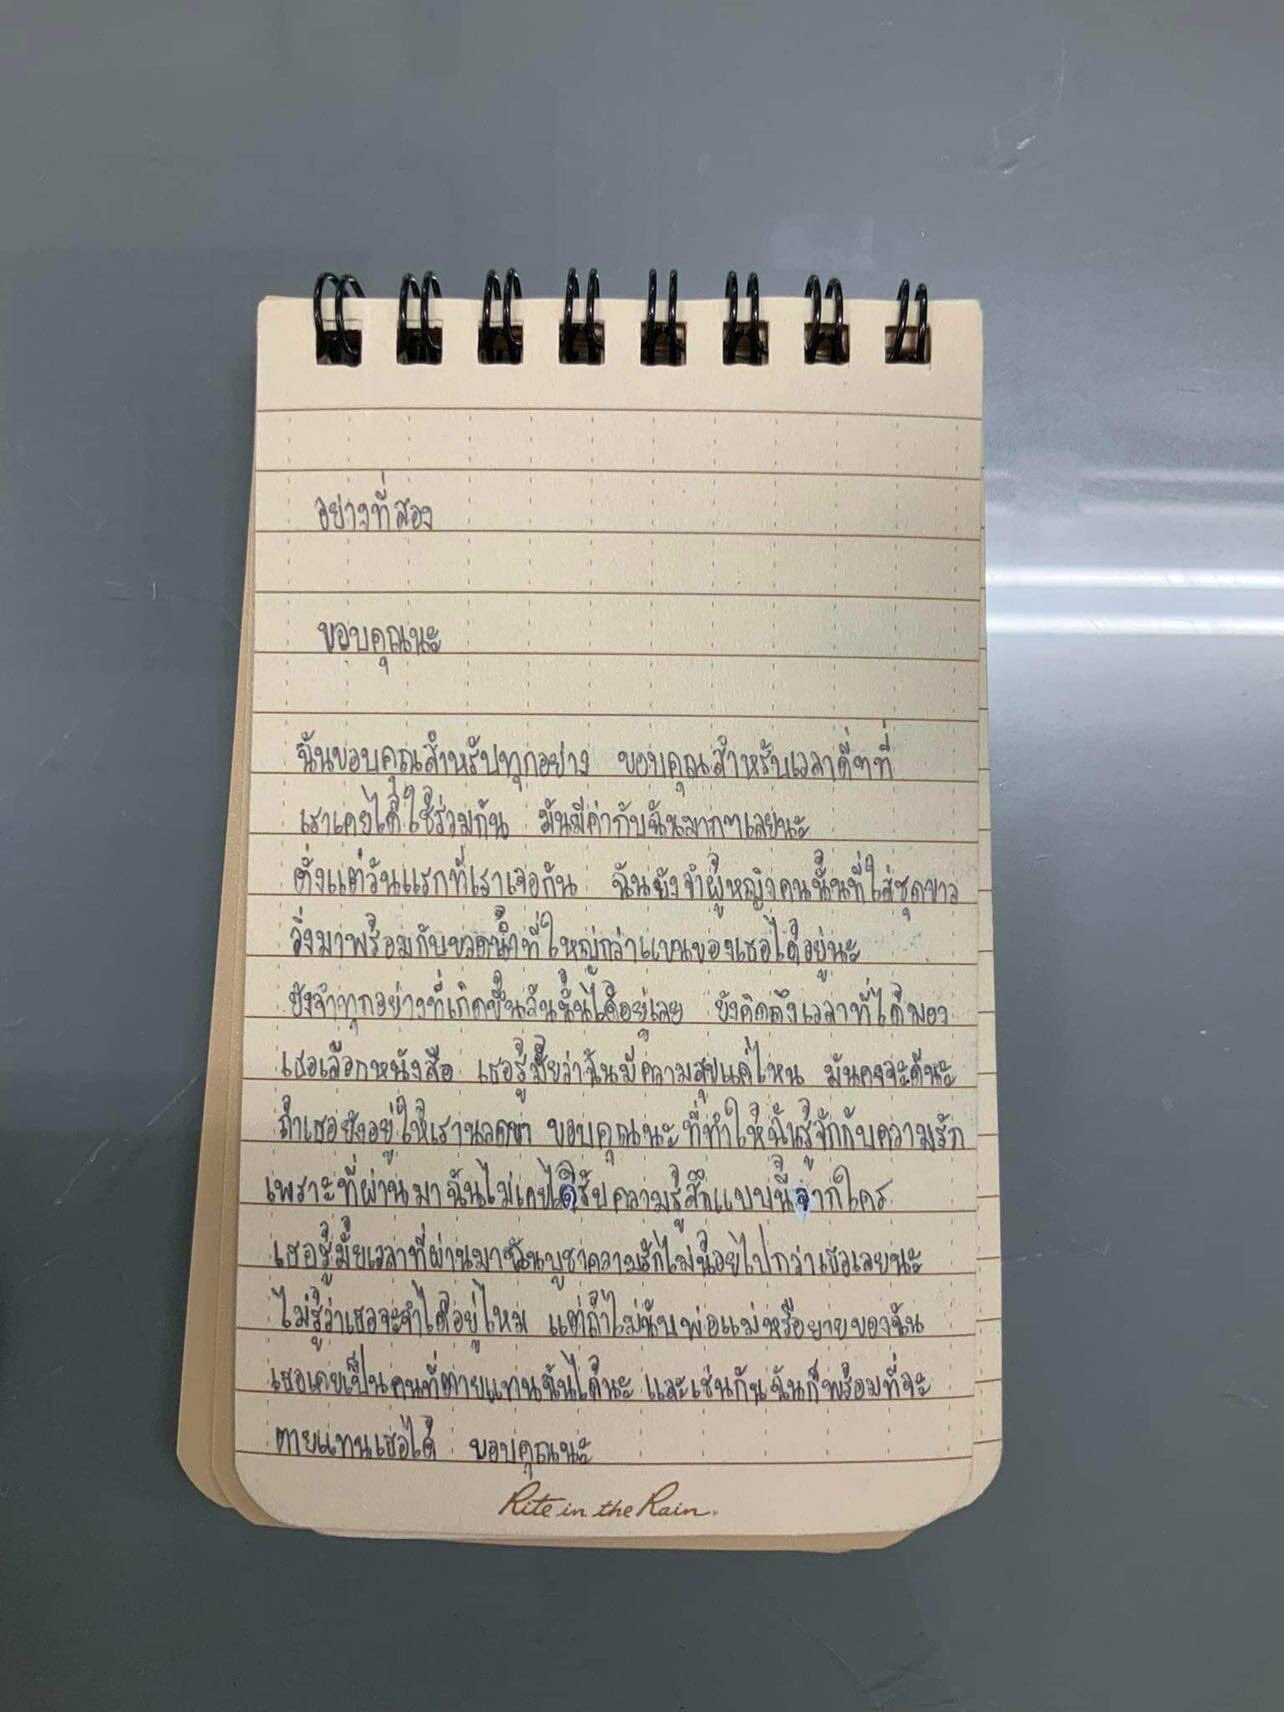 อย่างที่สอง
ขอบคุณนะ
ฉันขอบคุณสำหรับทุกอย่าง ขอบคุณสำหรับเวลาดีๆที่
เราเคยได้ใช้ร่วมกัน มันมีค่ากับฉันมากๆเลยนะ
ตั้งแต่วันแรกที่เราเจอกัน ฉันยังจำผู้หญิงคนนั้นที่ใส่ชุดขาว
วิ่งมาพร้อมกับขวดน้ำที่ใหญ่กว่าแขนของเธอได้อยู่นะ
ยังจำทุกอย่างที่เกิดขึ้นวันนั้นได้อยู่เลย ยังคิดถึงเวลาที่ได้มอง
เธอเลือกหนังสือ เธอรู้มั้ยว่าฉันมีความสุขแค่ไหน มันคงจะดีนะ
ถ้าเธอยังอยู่ให้เรานวดขา ขอบคุณนะที่ทำให้ฉันรู้จักกับความรัก
เพราะที่ผ่านมาฉันไม่เคยได้รับความรู้สึกแบบนี้จากใคร
เธอรู้มั้ยเวลาที่ผ่านมาฉันบูชาความรักไม่น้อยไปกว่าเธอเลยนะ
ไม่รู้ว่าเธอจะจำได้อยู่ไหม แต่ถ้าไม่นับพ่อแม่หรือยายของฉัน
เธอเคยเป็นคนที่ตายแทนฉันได้นะ และเช่นกันฉันก็พร้อมที่จะ
ตายแทนเธอได้ ขอบคุณนะ
Rite in the Rain